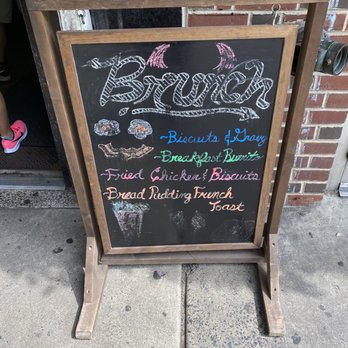 Brunch
~Biscuits & Gravy
~Breakfast Burrito
~Fried Chicken & Biscuits
~Bread Pudding French
Toast